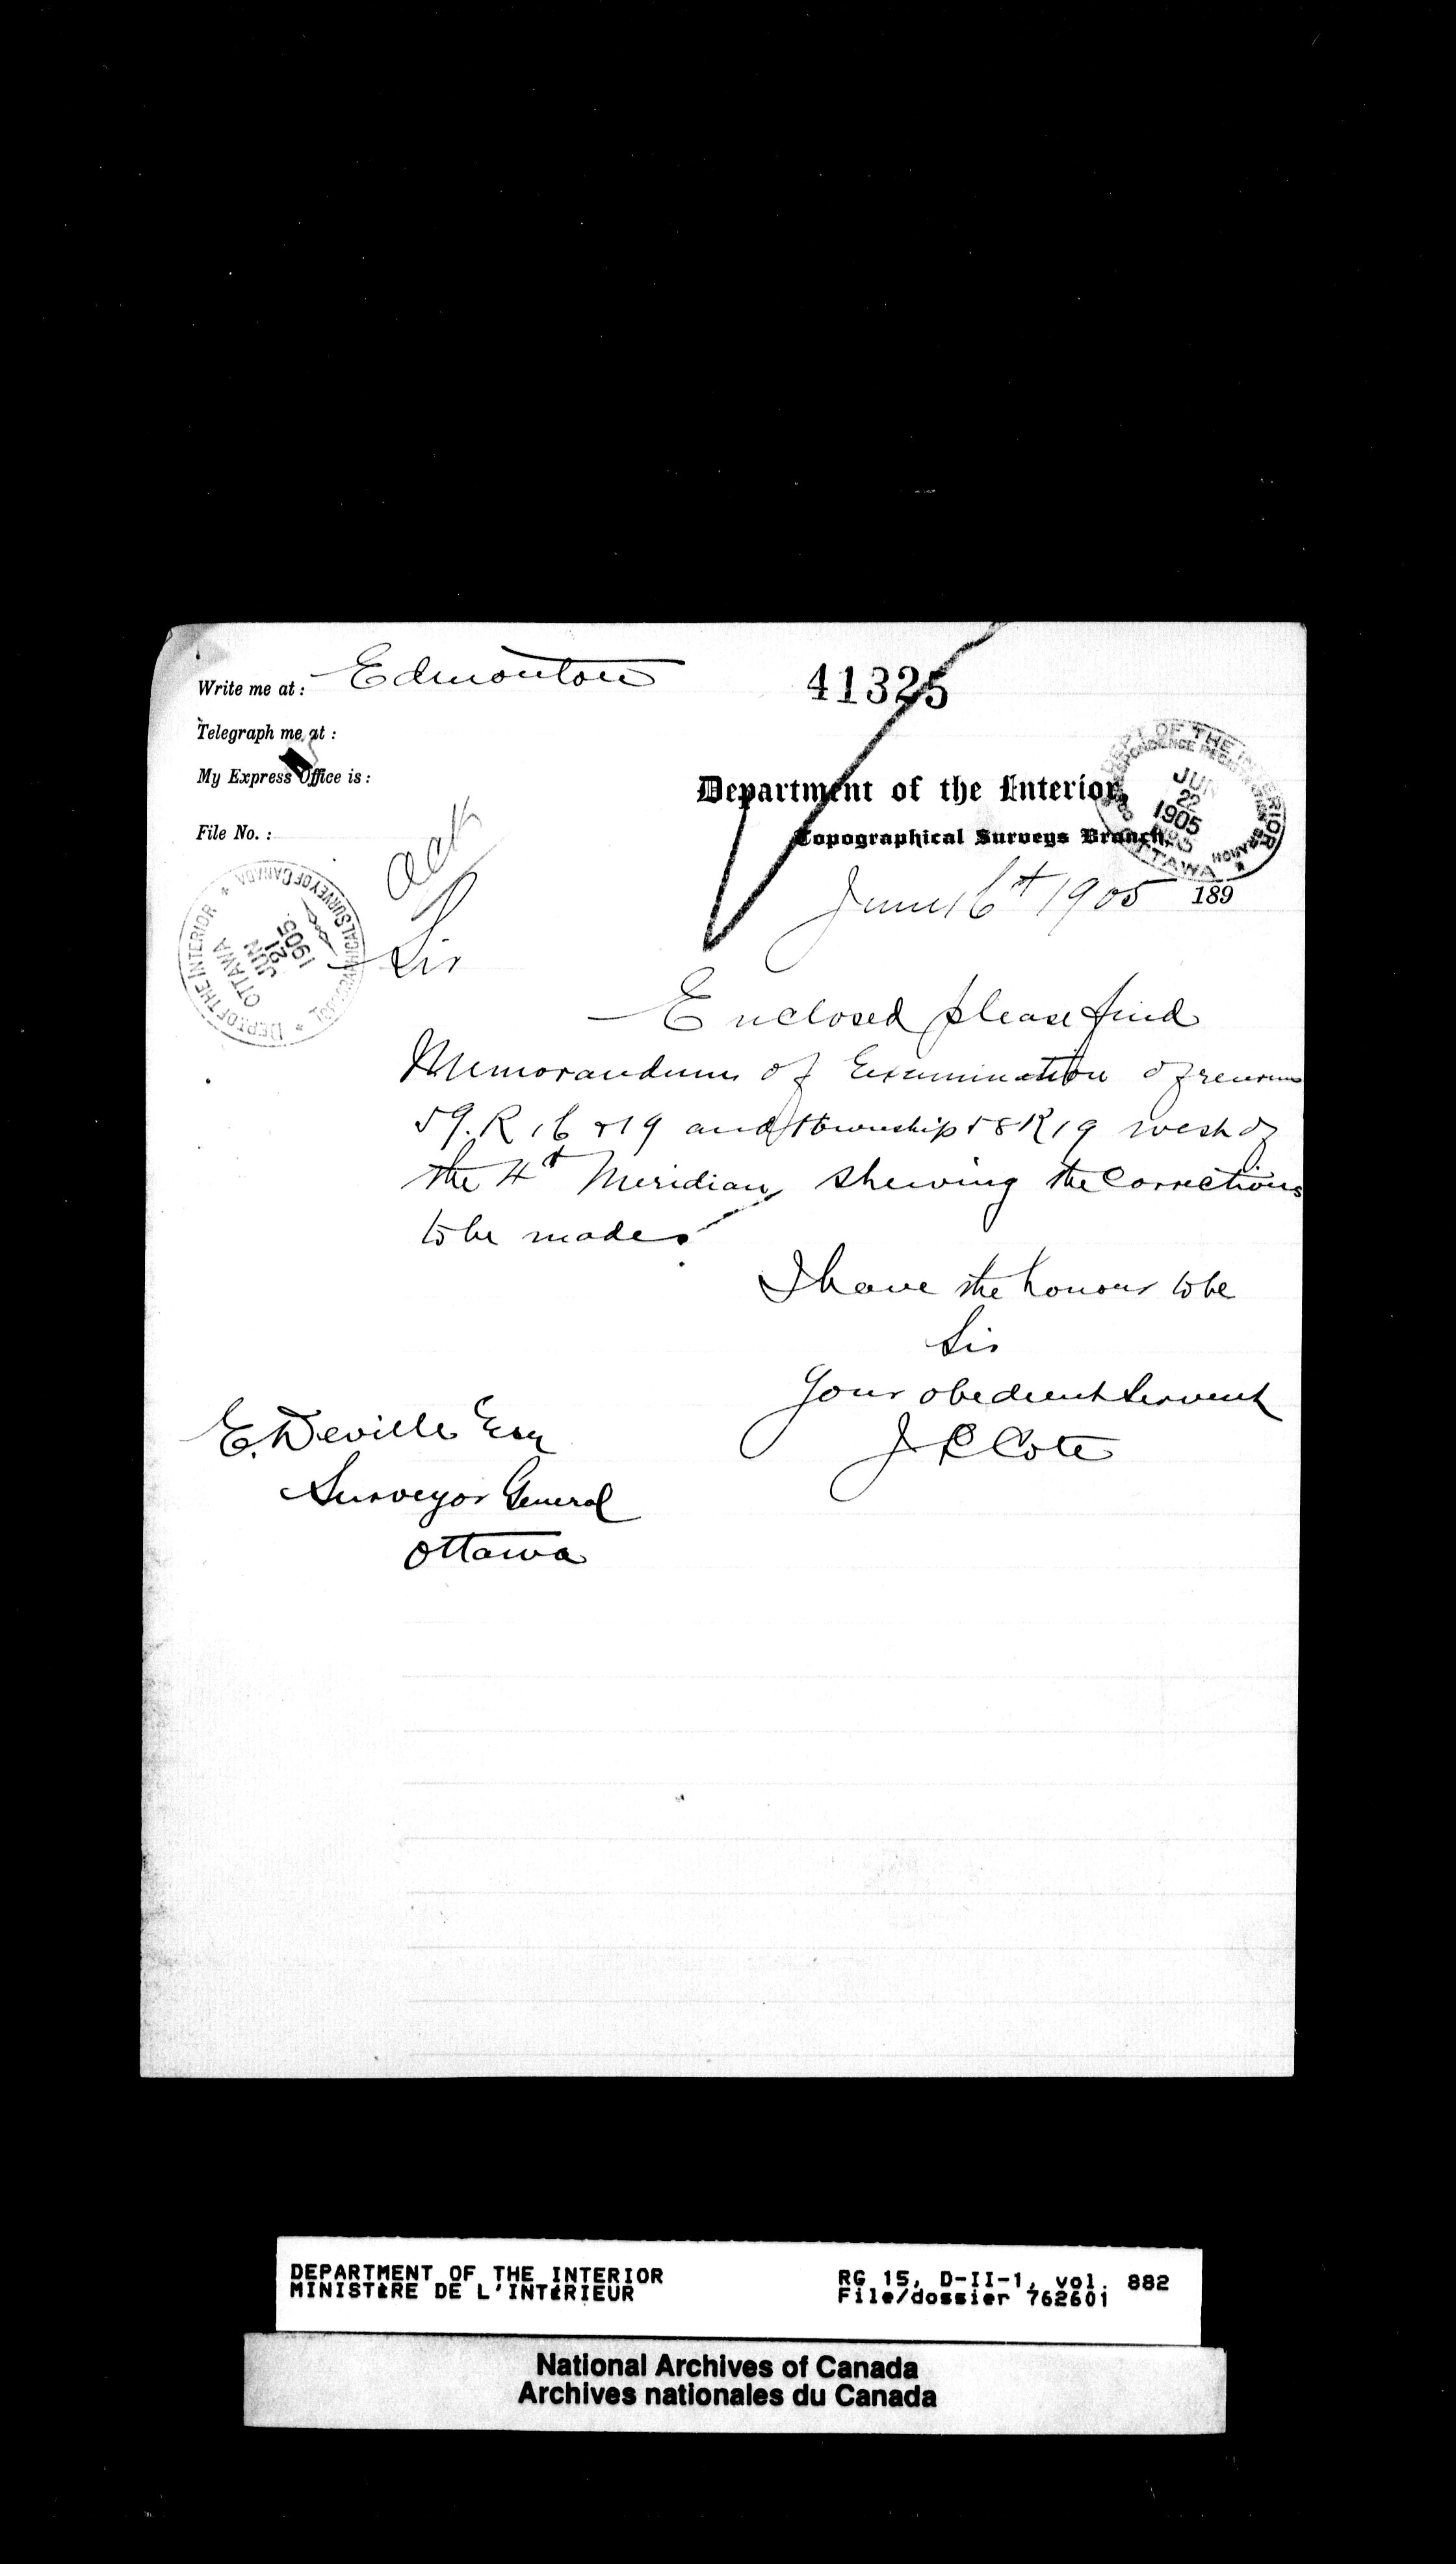 Write me at : Edmonton
41325
Telegraph me at :
My Express Office is :
Department of the Interior,
File No. :
Topographical Surveys Branch,
Ack
June 16th 1905 189
DEPT OF THE INTERIOR
JUN
22
1905
OTTAWA
DEPT OF THE INTERIOR * TOPOGRAPHICAL SURVEY OF CANADA *
OTTAWA
JUN
21
1905.
Sir
Enclosed please find
Memorandum of Examination of returns
59. R 16 & 19 and township 58 R 19 west of
the 4th Meridian, shewing the Corrections
to be made.
I have the honour to be
Sir
Your obedient Servent
J L Cote
E. Deville Esq
Surveyor General
Ottawa
DEPARTMENT OF THE INTERIOR
MINISTÈRE DE L'INTÉRIEUR
RG 15, D-II-1, vol. 882
File/dossier 762601
National Archives of Canada
Archives nationales du Canada